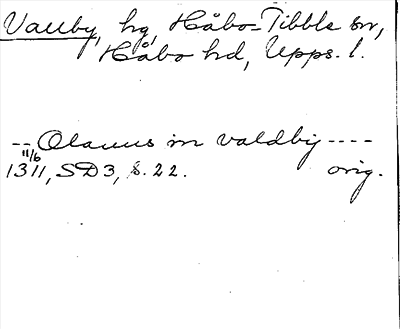 Vallby, hg, Håbo-Tibble sn,
Håbo hd, Upps. l.
-- Olauus in valdby ----
11/6
1311, SD3, s. 22. orig.